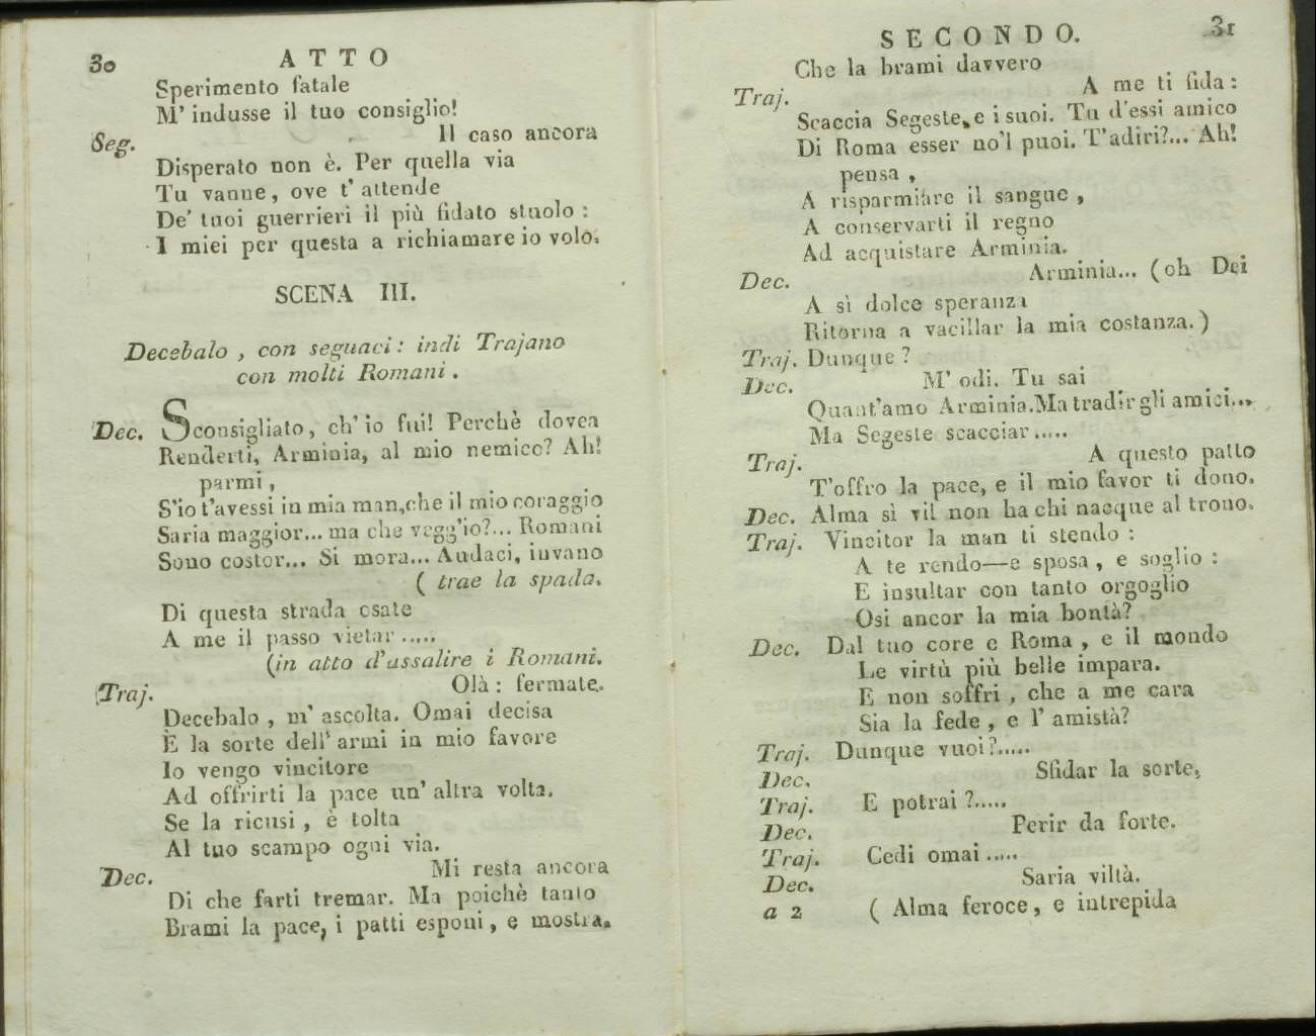 30 ATTO
Sperimento fatale
M' indusse il tuo consiglio!
Seg. Il caso ancora
Disperato non è. Per quella via
Tu vanne, ove t' attende
De' tuoi guerrieri il più fidato stuolo :
I miei per questa a richiamare io volo.
SCENA III.
Decebalo , con seguaci : indi Trajano
con molti Romani .
Dec. Sconsigliato, ch' io fui! Perchè dovea
Renderti, Arminia, al mio nemico? Ah!
parmi ,
S'io t'avessi in mia man,che il mio coraggio
Saria maggior... ma che vegg'io?... Romani
Sono costor... Si mora... Audaci, invano
( trae la spada.
Di questa strada osate
A me il passo vietar .....
(in atto d'assalire i Romani.
Traj. Olà : fermate.
Decebalo , m' ascolta. Omai decisa
È la sorte dell' armi in mio favore
Io vengo vincitore
Ad offrirti la pace un' altra volta.
Se la ricusi , è tolta
Al tuo scampo ogni via.
Dec. Mi resta ancora
Di che farti tremar. Ma poichè tanto
Brami la pace, i patti esponi , e mostra.
SECONDO. 31
Che la brami davvero
Traj. A me ti fida :
Scaccia Segeste, e i suoi. Tu d'essi amico
Di Roma esser no'l puoi. T'adiri?... Ah!
pensa ,
A risparmiare il sangue ,
A conservarti il regno
Ad acquistare Arminia.
Dec. Arminia... (oh Dei
A sì dolce speranza
Ritorna a vacillar la mia costanza.)
Traj. Dunque ?
Dec. M' odi. Tu sai
Quant'amo Arminia.Ma tradir gli amici...
Ma Segeste scacciar .....
Traj. A questo patto
T'offro la pace, e il mio favor ti dono.
Dec. Alma sì vil non ha chi nacque al trono.
Traj. Vincitor la man ti stendo :
A te rendo—e sposa , e soglio :
E insultar con tanto orgoglio
Osi ancor la mia bontà?
Dec. Dal tuo core e Roma , e il mondo
Le virtù più belle impara.
E non soffri , che a me cara
Sia la fede , e l' amistà?
Traj. Dunque vuoi?.....
Dec. Sfidar la sorte,
Traj. E potrai ?.....
Dec. Perir da forte.
Traj. Cedi omai .....
Dec. Saria viltà.
a 2 ( Alma feroce , e intrepida